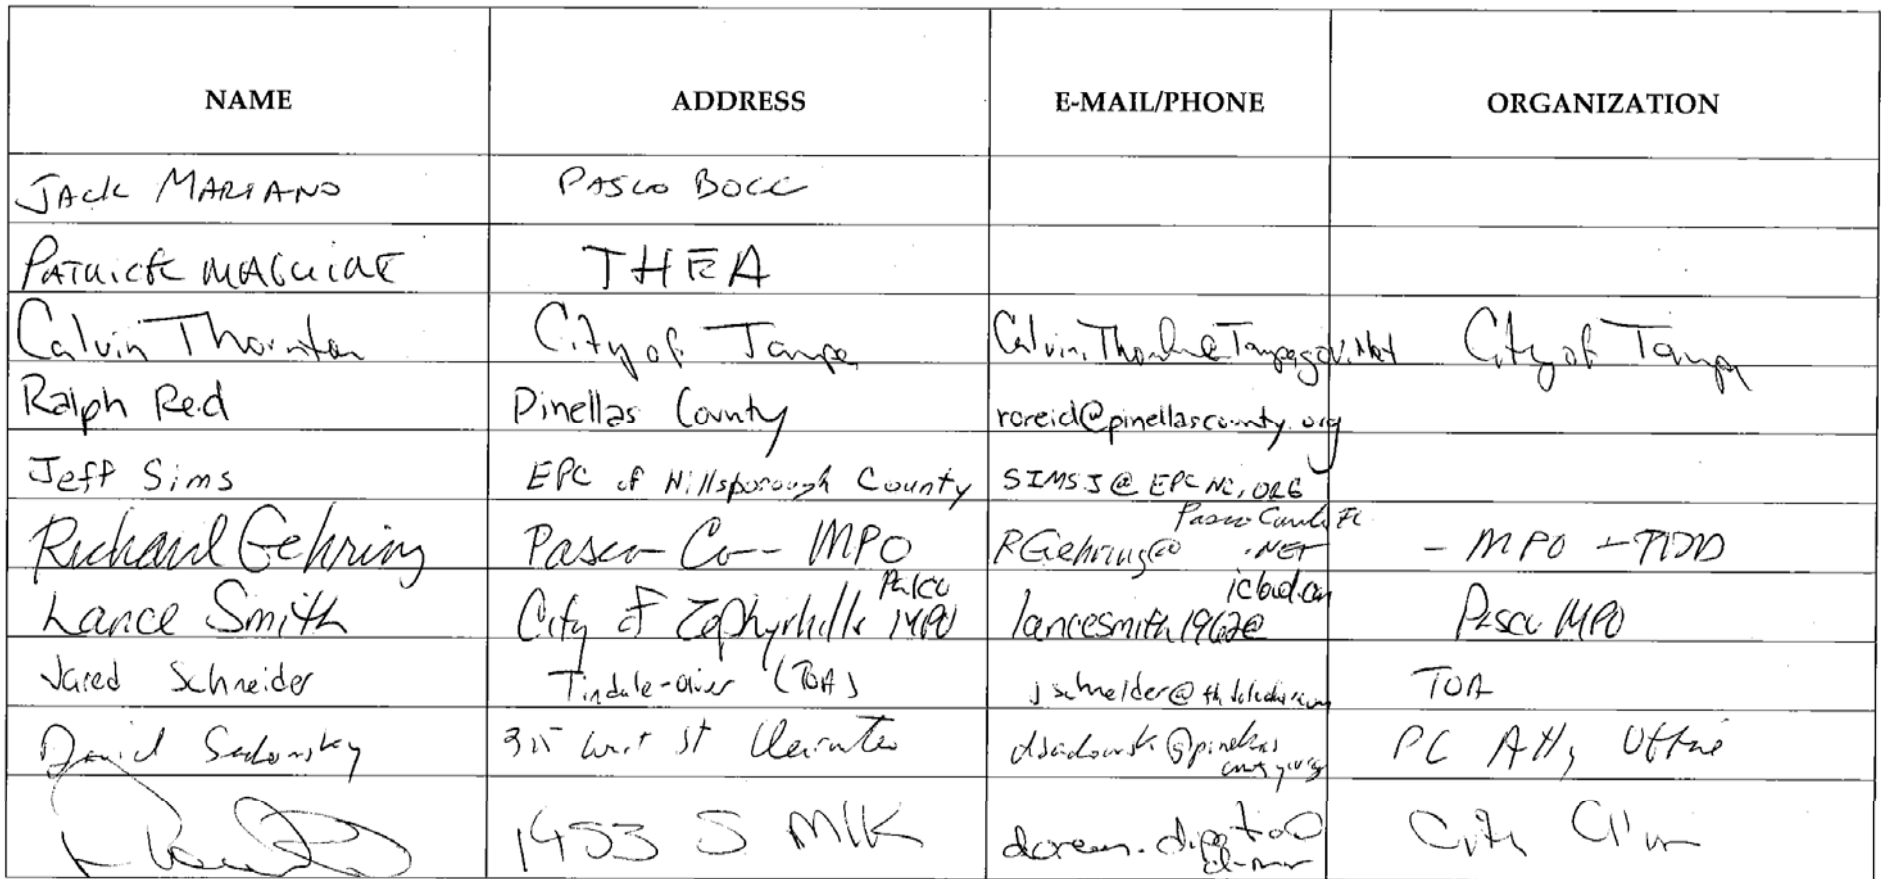 NAME ADDRESS E-MAIL/PHONE ORGANIZATION
JACK MARIANO PASCO BOCC
PATRICK MAGUIRE THEA
Calvin Thornton City of Tampa City of Tampa
Ralph Reid Pinellas County roreid@pinellascounty.org
Jeff Sims EPC of Hillsborough County SIMSJ@EPCHC.ORG
Richard Gehring Pasco Co - MPO RGehring@ PascoCountyFL .NET - MPO
Lance Smith City of Zephyrhills Pasco MPO lancesmith1962@ icloud.com Pasco MPO
Jared Schneider Tindale-Oliver (TOA) TOA
David Sadowsky 315 Court St Clearwater PC Atty Office
1453 S MLK